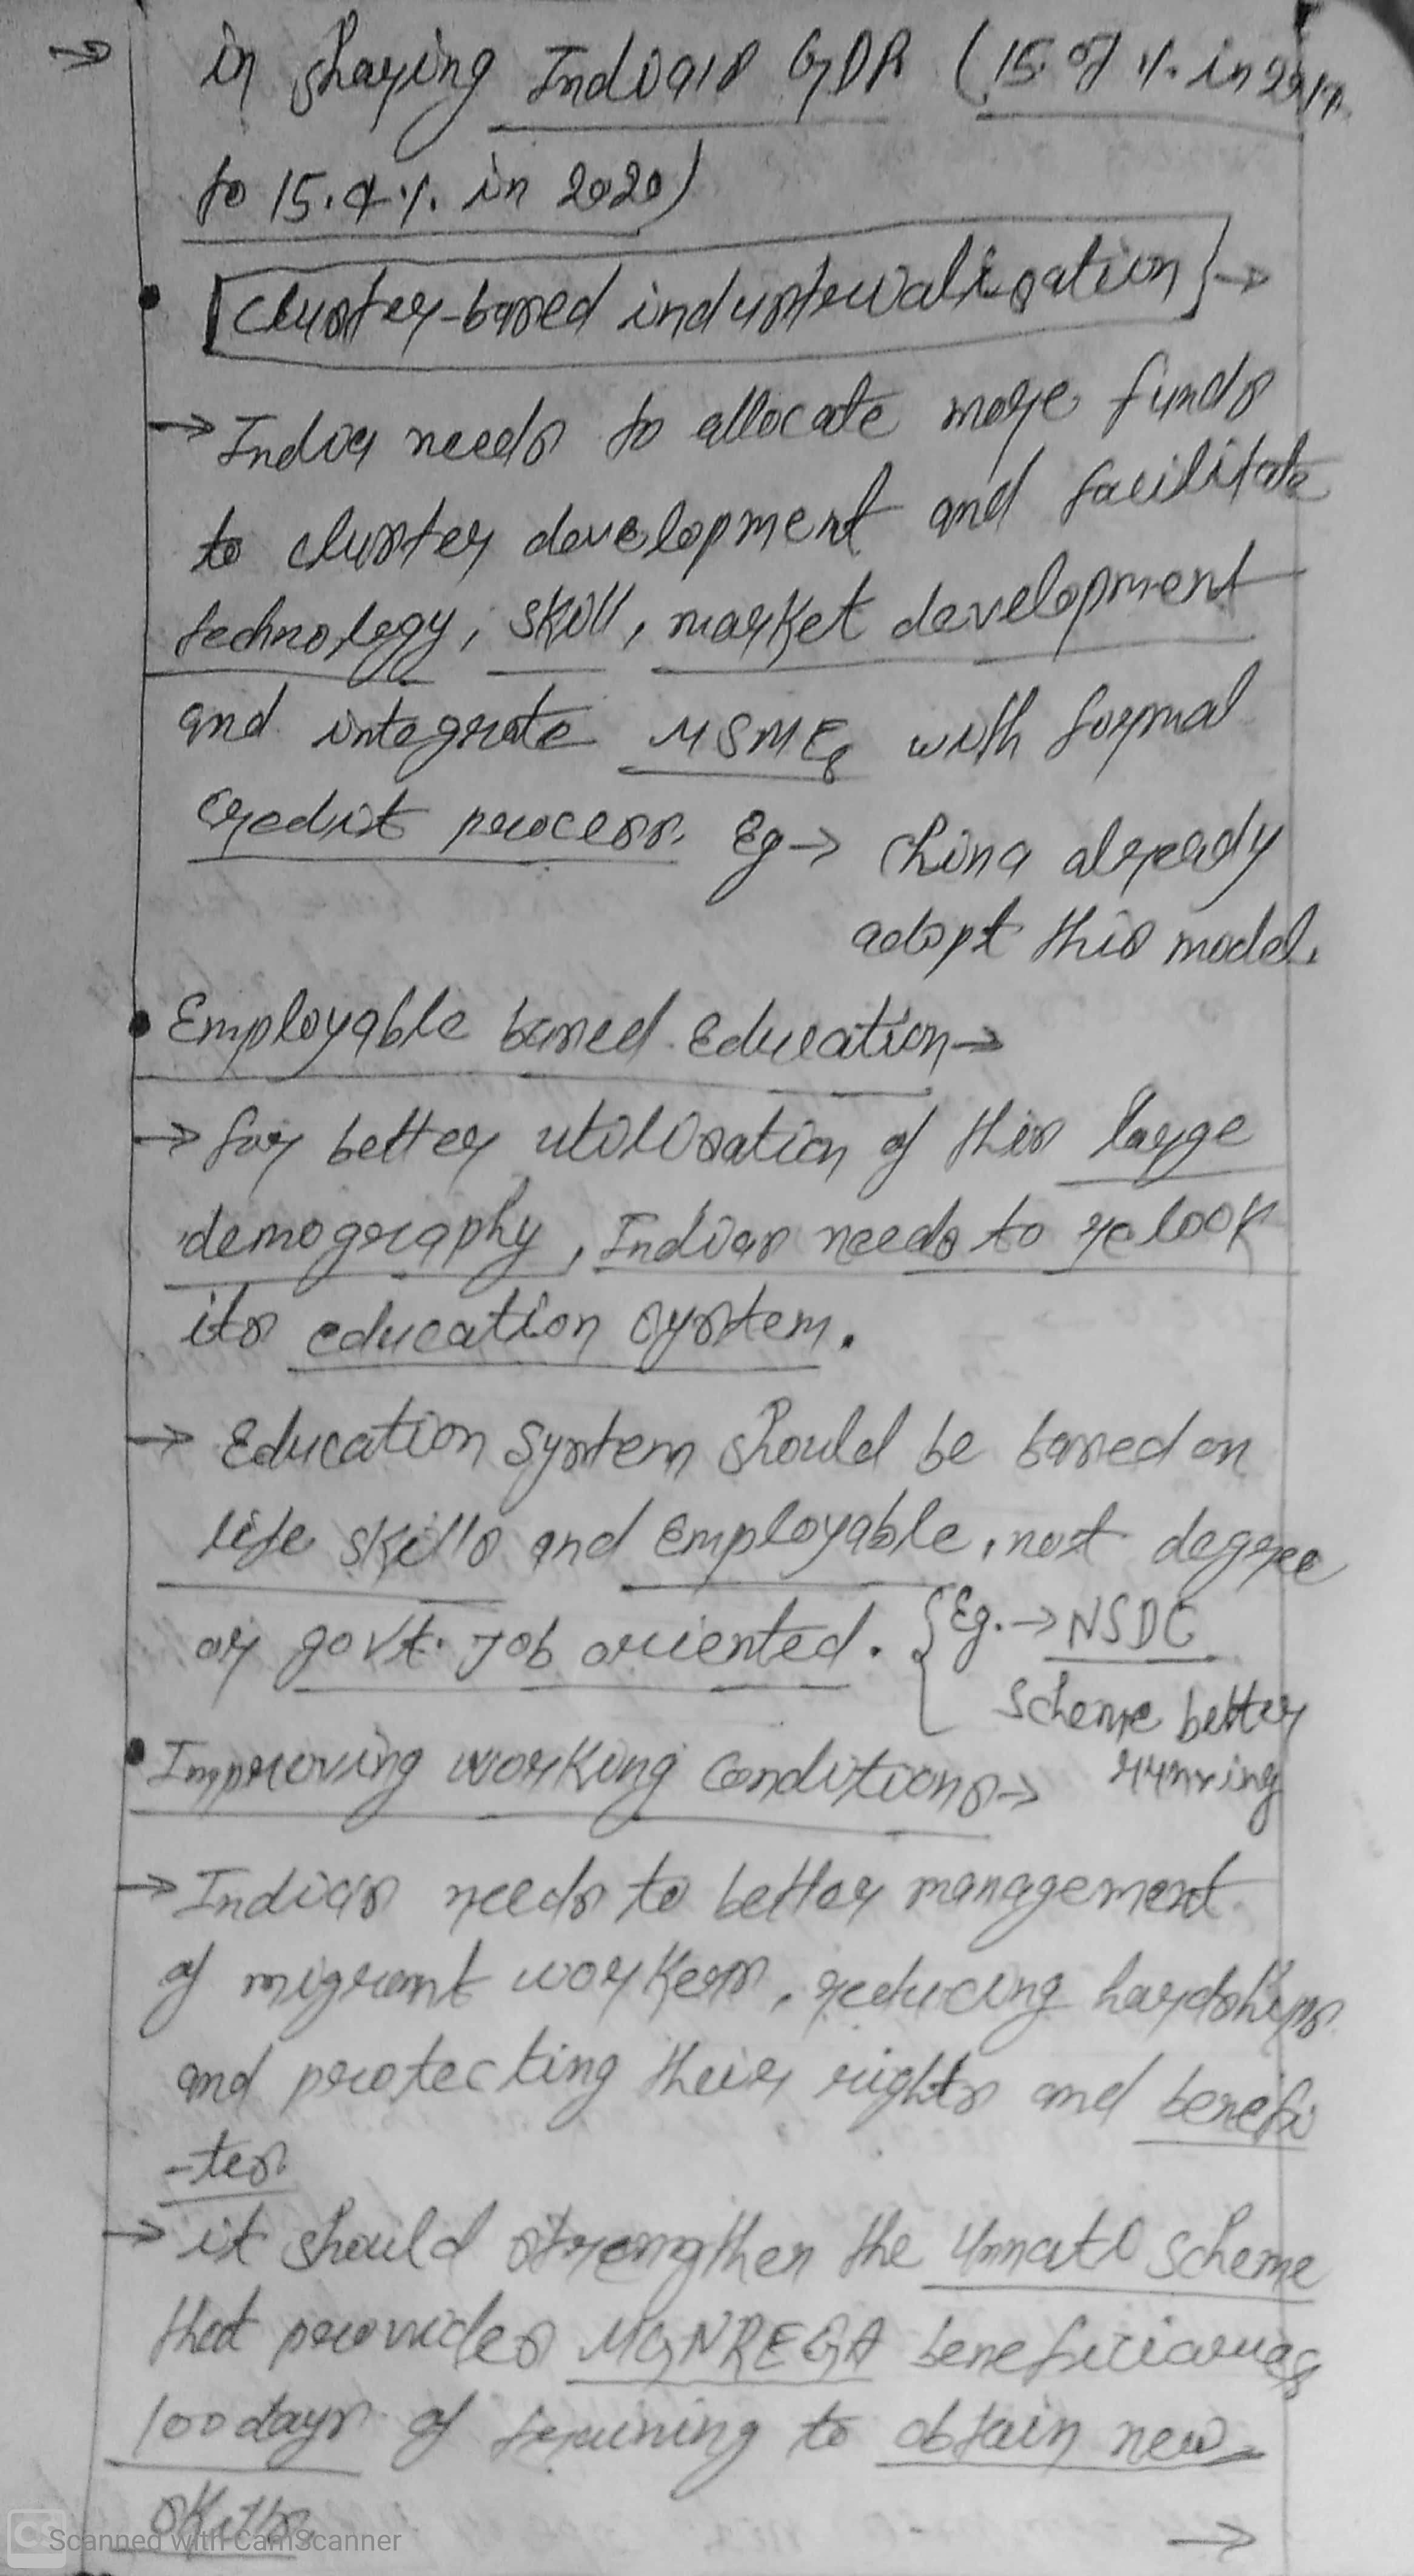 → in sharing India's GDP (15.07%. in 2017
to 15.4%. in 2020)
• [cluster-based industrialisation} →
→ India needs to allocate more funds
to cluster development and facilitate
technology, skill, market development
and integrate MSMEs with formal
credit process. Eg → China already
adopt this model.
• Employable based Education →
→ for better utilisation of this large
demography, Indias needs to relook
its education system.
→ Education system should be based on
life skills and employable, not degree
or govt. Job oriented. {Eg. → NSDC
scheme better
running
• Improving working conditions →
→ Indias needs to better management
of migrant workers, reducing hardships
and protecting their rights and benefi
-tes.
→ it should strengthen the Unnati scheme
that provides MGNREGA beneficiaries
100 days of training to obtain new
skills.
→
CS Scanned with CamScanner